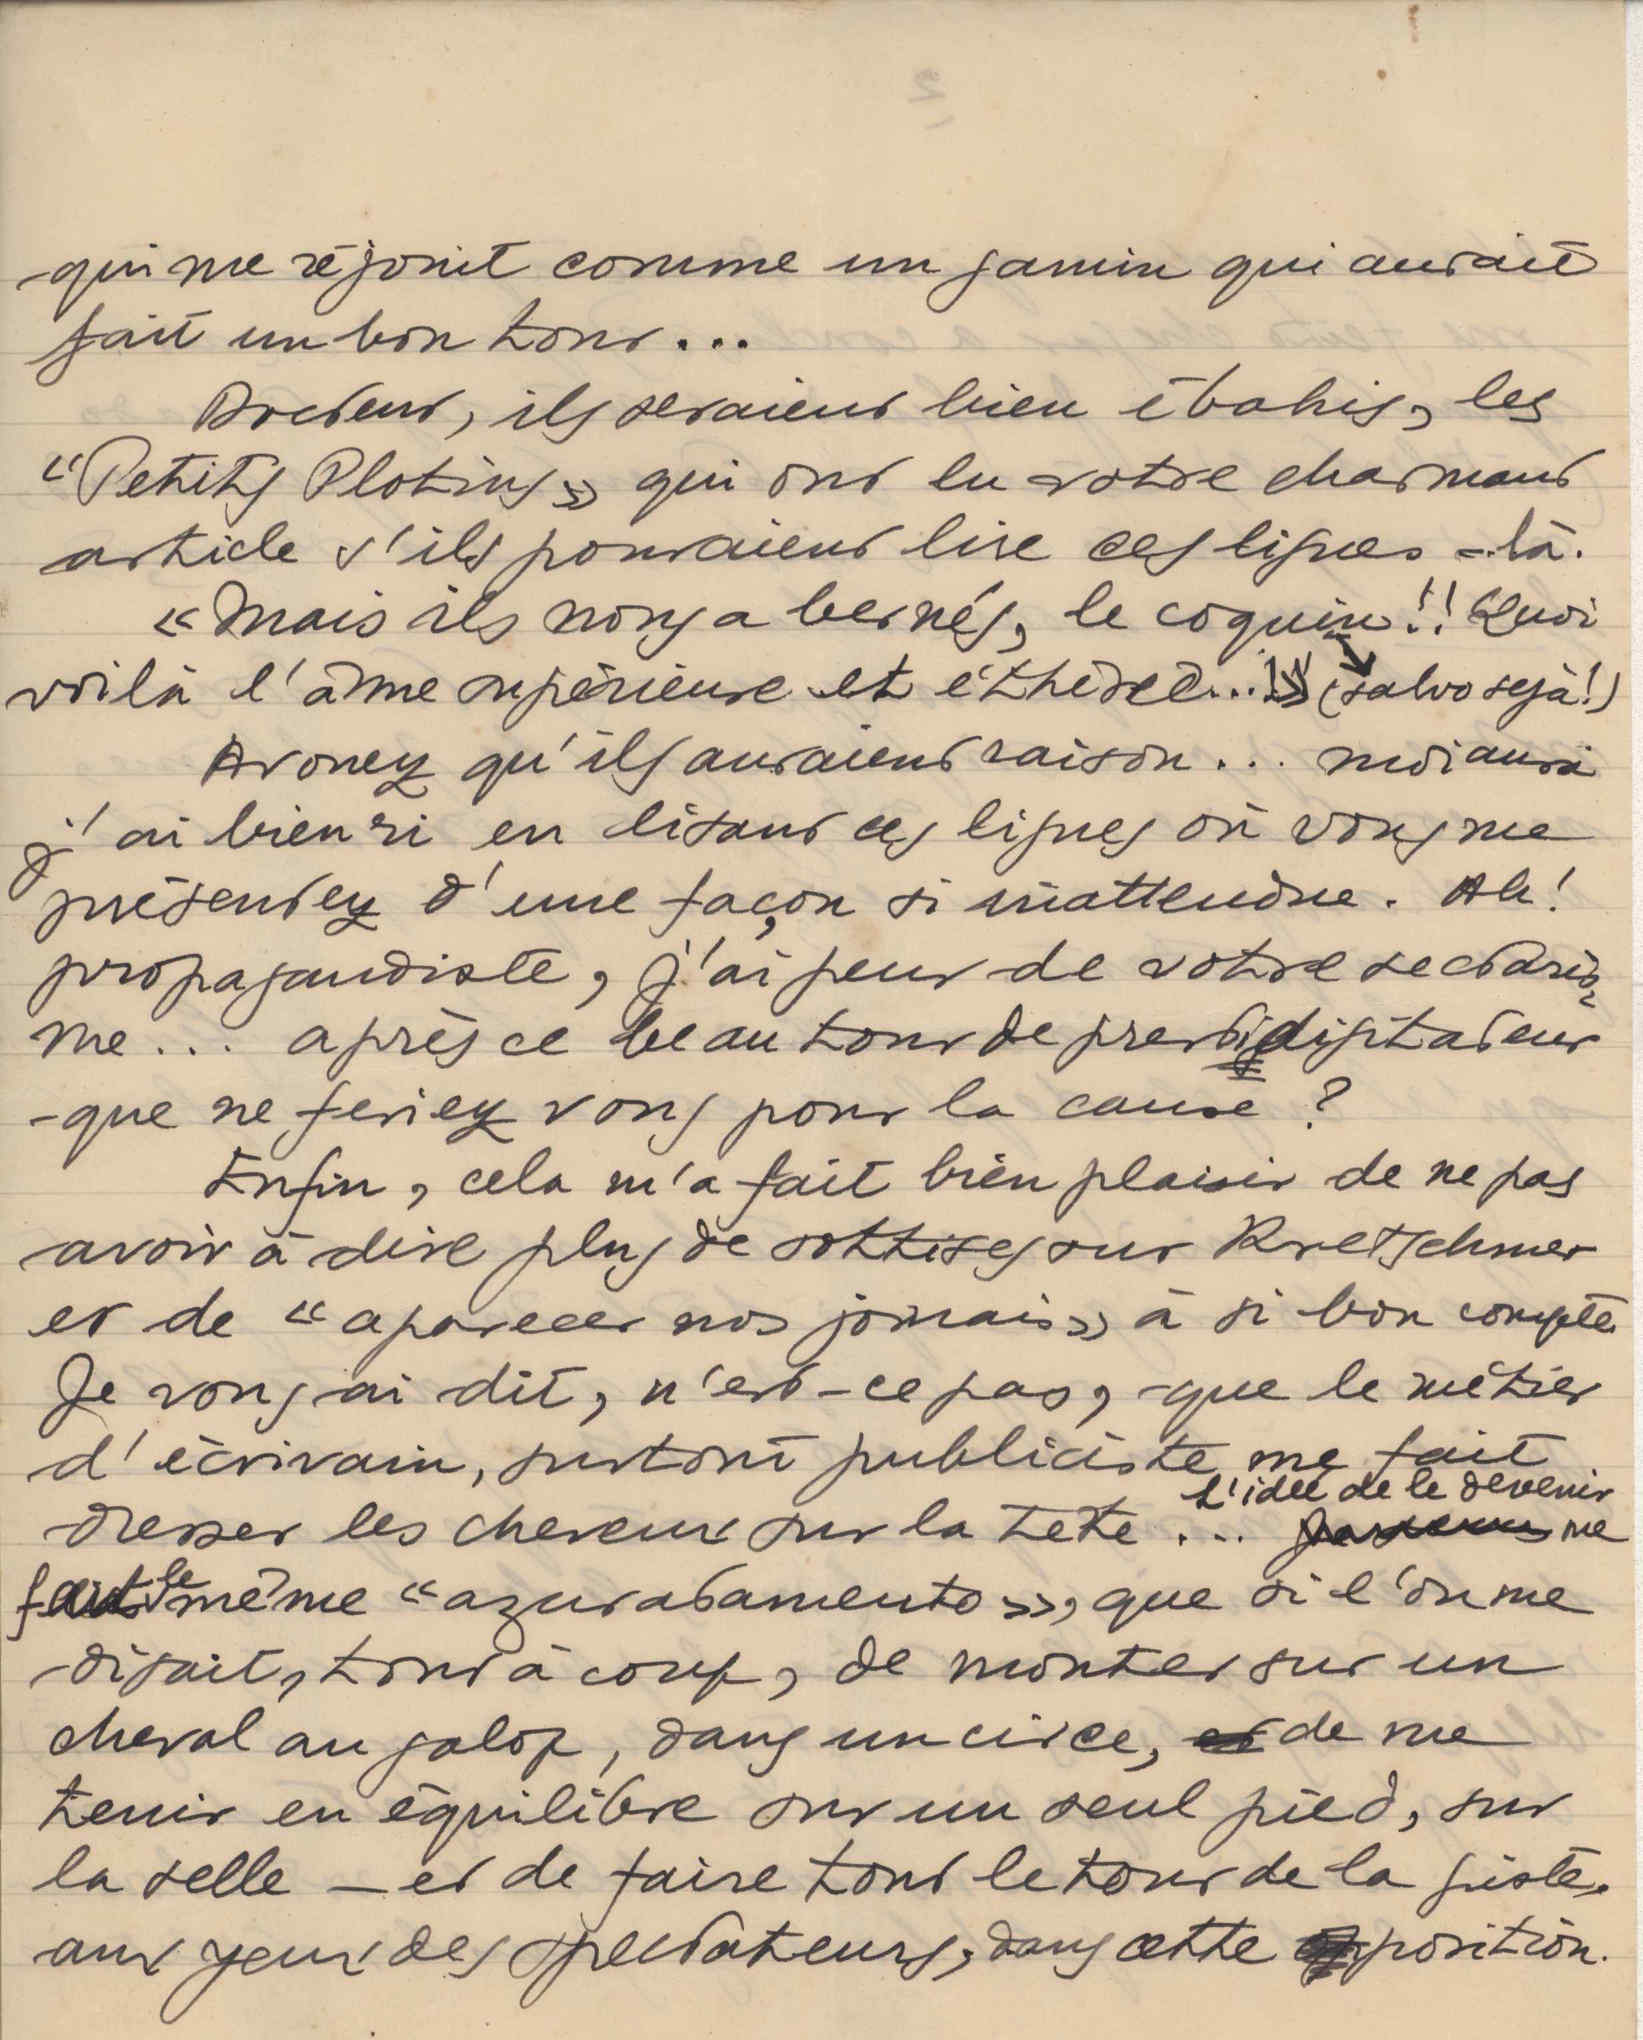 qui me réjouit comme un gamin qui aurait
fait un bon tour...
Docteur, ils seraient bien ébahis, les
"Petits Plotins» qui ont lu votre charmant
article s'ils pouvaient lire ces lignes-là.
«Mais ils nous a bernés, le coquin!! Quoi
voilà l'âme supérieure et éthérée...!» (salvo sejà!)
Avouez qu'ils auraient raison... moi aussi
j'ai bien ri en lisant ces lignes où vous me
présentez d'une façon si inattendue. Ah!
propagandiste, j'ai peur de votre sectaris-
me... après ce beau tour de prestidigitateur
que ne feriez vous pour la cause?
Enfin, cela m'a fait bien plaisir de ne pas
avoir à dire plus de sottises sur Kretschmer
et de «aparecer nos jornais» à si bon compte.
Je vous ai dit, n'est-ce pas, que le métier
d'écrivain, surtout publiciste me fait
dresser les cheveux sur la tête... l'idée de le devenir me
fait le même «azuratamento», que si l'on me
disait, tout à coup, de monter sur un
cheval au galop, dans un circe, et de me
tenir en équilibre sur un seul pied, sur
la selle — et de faire tout le tour de la piste,
aux yeux des spectateurs, dans cette position.